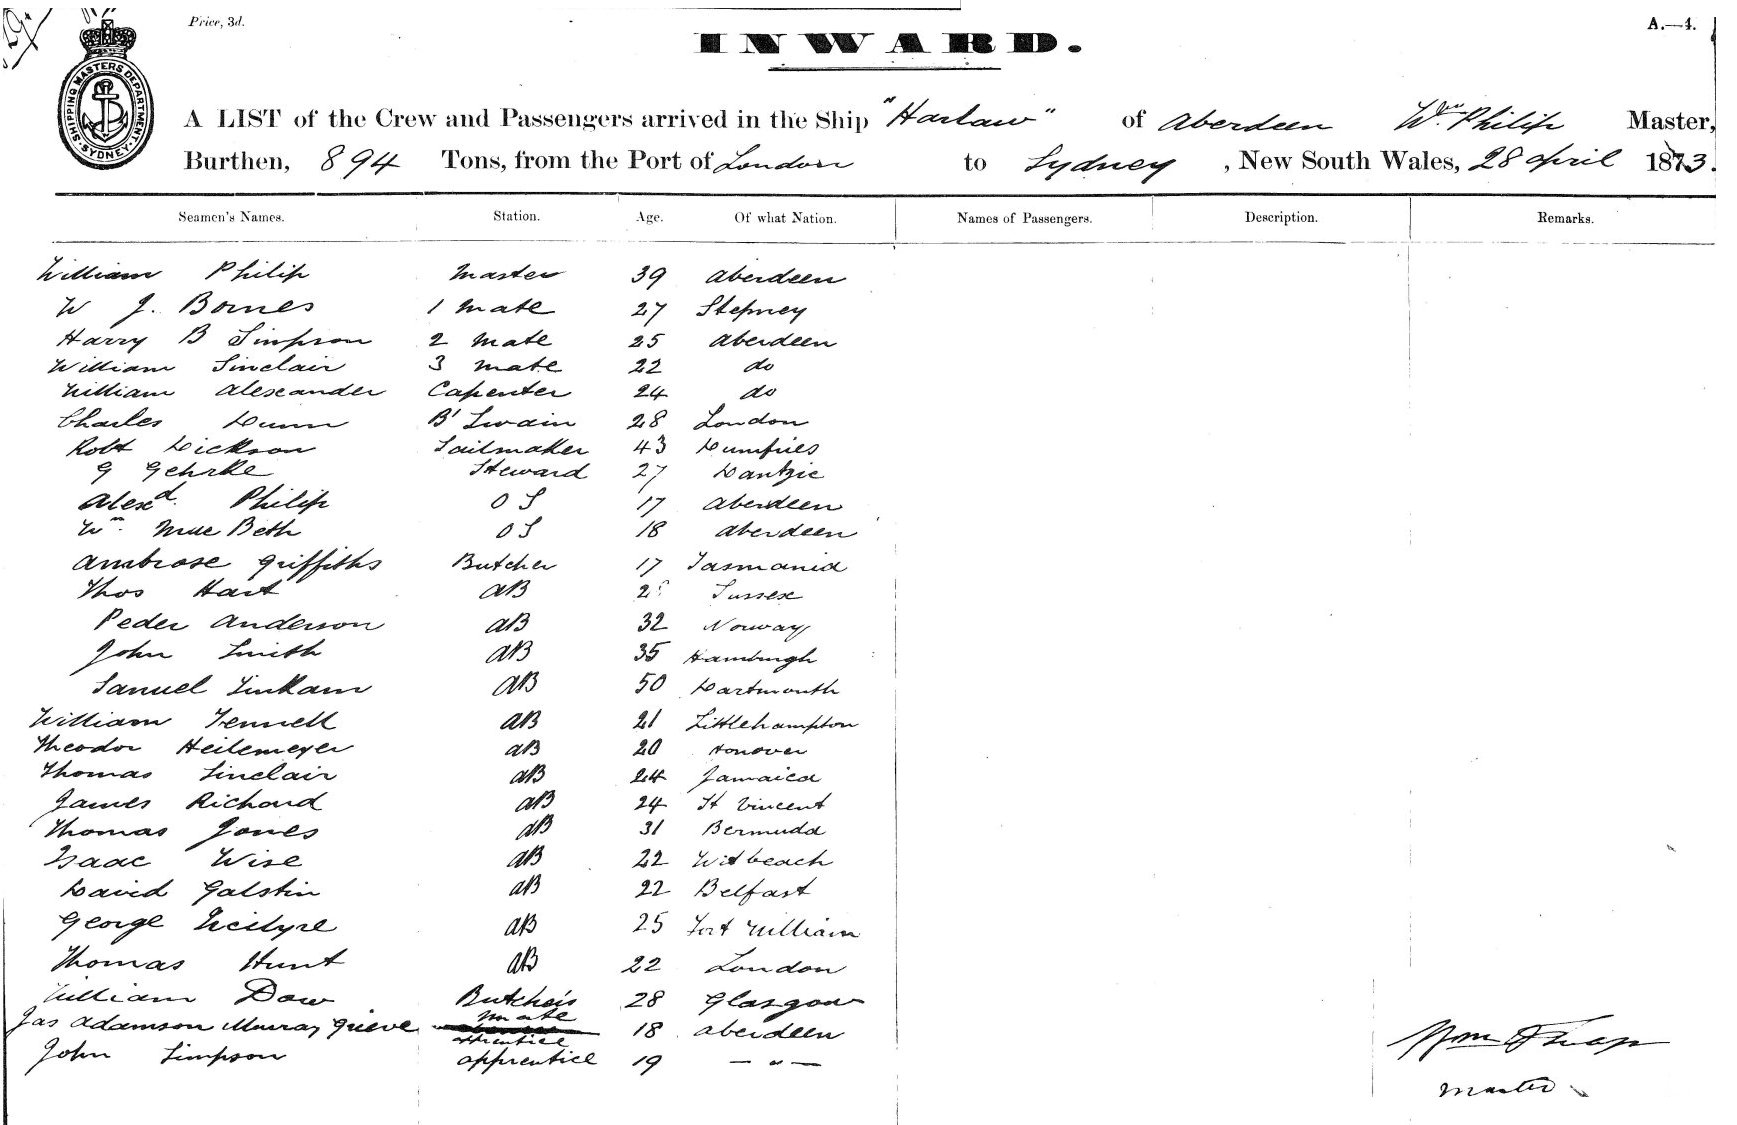 Price, 3d.
A.—4.
SHIPPING MASTERS DEPARTMENT SYDNEY
INWARD.
A LIST of the Crew and Passengers arrived in the Ship "Harlaw" of Aberdeen Wm Philip Master,
Burthen, 894 Tons, from the Port of London to Sydney, New South Wales, 28 April 1873.
Seamen's Names. Station. Age. Of what Nation. Names of Passengers. Description. Remarks.
William Philip Master 39 Aberdeen
W J. Bornes 1 Mate 27 Stepney
Harry B Simpson 2 Mate 25 Aberdeen
William Sinclair 3 Mate 22 do
William Alexander Capenter 24 do
Charles Dunn B' Swain 28 London
Robt Dickson Sailmaker 43 Dumfries
G Gehrke Steward 27 Dantzic
Alexd. Philip O S 17 Aberdeen
Wm. Mac Beth O S 18 Aberdeen
Ambrose Griffiths Butcher 17 Tasmania
Thos Hart AB Sussex
Peder Anderson AB 32 Norway
John Smith AB 35 Hamburgh
Samuel Linkam AB 50 Dartmouth
William Fennell AB 21 Littlehampton
Theodor Heilemeyer AB 20 Honover
Thomas Sinclair AB 24 Jamaica
James Richard AB 24 St Vincent
Thomas Jones AB 31 Bermuda
Isaac Wise AB 22 Witbeach
David Galstin AB 22 Belfast
George AB 25 Fort William
Thomas Hunt AB 22 London
William Dow Butcheis Mate 28 Glasgow
Jas Adamson Murray Grieve apprentice 18 Aberdeen
John Simpson apprentice 19 — " —
Wm Philip
Master